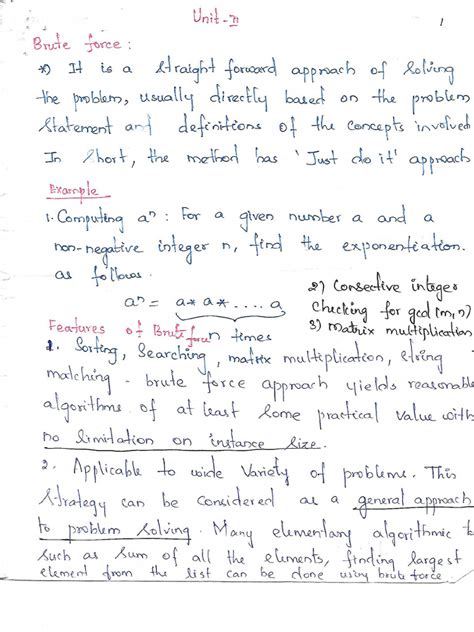 Unit-II
1
Brute force :
*) It is a straight forward approach of solving
the problem, usually directly based on the problem
statement and definitions of the concepts involved
In short, the method has 'Just do it' approach
Example
1. Computing aⁿ : For a given number a and a
non-negative integer n, find the exponentiation.
as follows.
aⁿ = a * a * .... a
n times
2) Consective integer
checking for gcd (m,n)
3) Matrix multiplication
Features of Brute force
1. Sorting, Searching, matrix multiplication, string
matching - brute force approach yields reasonable
algorithms of at least some practical value with
no limitation on instance size.
2. Applicable to wide variety of problems. This
strategy can be considered as a general approach
to problem solving. Many elementary algorithmic t
such as sum of all the elements, finding largest
element from the list can be done using brute force